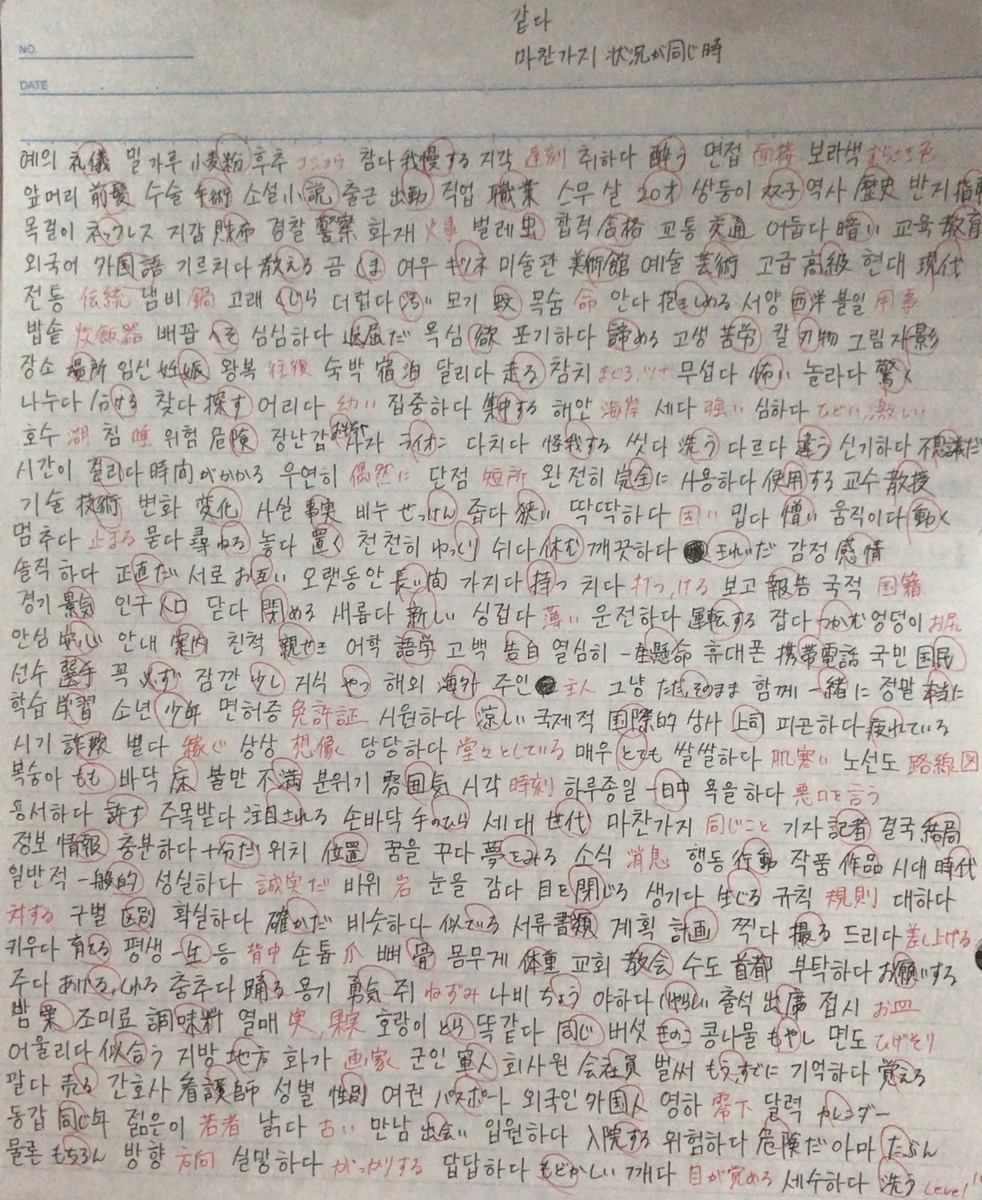 같다
마찬가지 状況が同じ時
NO.
DATE
예의 礼儀 밀가루 小麦粉 후추 コショウ 참다 我慢する 지각 遅刻 취하다 酔う 면접 面接 보라색 むらさき色
앞머리 前髪 수술 手術 소설 小説 출근 出勤 직업 職業 스무 살 20才 쌍둥이 双子 역사 歴史 반지 指輪
목걸이 ネックレス 지갑 財布 경찰 警察 화재 火事 벌레 虫 합격 合格 교통 交通 어둡다 暗い 교육 教育
외국어 外国語 가르치다 教える 곰 くま 여우 キツネ 미술관 美術館 예술 芸術 고급 高級 현대 現代
전통 伝統 냄비 鍋 고래 くじら 더럽다 汚い 모기 蚊 목숨 命 안다 抱きしめる 서양 西洋 볼일 用事
밥솥 炊飯器 배꼽 へそ 심심하다 退屈だ 욕심 欲 포기하다 諦める 고생 苦労 칼 刃物 그림자 影
장소 場所 임신 妊娠 왕복 往復 숙박 宿泊 달리다 走る 참치 まぐろ,ツナ 무섭다 怖い 놀라다 驚く
나누다 分ける 찾다 探す 어리다 幼い 집중하다 集中する 해안 海岸 세다 強い 심하다 ひどい 激しい
호수 湖 침 唾 위험 危険 장난감 おもちゃ 사자 ライオン 다치다 怪我する 씻다 洗う 다르다 違う 신기하다 不思議だ
시간이 걸리다 時間がかかる 우연히 偶然に 단점 短所 완전히 完全に 사용하다 使用する 교수 教授
기술 技術 변화 変化 사실 事実 비누 せっけん 좁다 狭い 딱딱하다 固い 밉다 憎い 움직이다 動く
멈추다 止まる 묻다 尋ねる 놓다 置く 천천히 ゆっくり 쉬다 休む 깨끗하다 きれいだ 감정 感情
솔직하다 正直だ 서로 お互い 오랫동안 長い間 가지다 持つ 치다 打つ,ける 보고 報告 국적 国籍
경기 景気 인구 人口 닫다 閉める 새롭다 新しい 싱겁다 薄い 운전하다 運転する 잡다 つかむ 엉덩이 お尻
안심 安心 안내 案内 친척 親せき 어학 語学 고백 告白 열심히 一生懸命 휴대폰 携帯電話 국민 国民
선수 選手 꼭 必ず 잠깐 少し 자식 やつ 해외 海外 주인 主人 그냥 ただ,そのまま 함께 一緒に 정말 本当に
학습 学習 소년 少年 면허증 免許証 시원하다 涼しい 국제적 国際的 상사 上司 피곤하다 疲れている
사기 詐欺 벌다 稼ぐ 상상 想像 당당하다 堂々としている 매우 とても 쌀쌀하다 肌寒い 노선도 路線図
복숭아 もも 바닥 床 불만 不満 분위기 雰囲気 시각 時刻 하루종일 一日中 욕을 하다 悪口を言う
용서하다 許す 주목받다 注目される 손바닥 手のひら 세대 世代 마찬가지 同じこと 기자 記者 결국 結局
정보 情報 충분하다 十分だ 위치 位置 꿈을 꾸다 夢をみる 소식 消息 행동 行動 작품 作品 시대 時代
일반적 一般的 성실하다 誠実だ 바위 岩 눈을 감다 目を閉じる 생기다 生じる 규칙 規則 대하다
対する 구별 区別 확실하다 確かだ 비슷하다 似ている 서류 書類 계획 計画 찍다 撮る 드리다 差し上げる
키우다 育てる 평생 一生 등 背中 손톱 爪 뼈 骨 몸무게 体重 교회 教会 수도 首都 부탁하다 お願いする
주다 あげる,くれる 춤추다 踊る 용기 勇気 쥐 ねずみ 나비 ちょう 야하다 いやらしい 출석 出席 접시 お皿
밤 栗 조미료 調味料 열매 実,果実 호랑이 とら 똑같다 同じ 버섯 きのこ 콩나물 もやし 면도 ひげそり
어울리다 似合う 지방 地方 화가 画家 군인 軍人 회사원 会社員 벌써 もう,すでに 기억하다 覚える
팔다 売る 간호사 看護師 성별 性別 여권 パスポート 외국인 外国人 영하 零下 달력 カレンダー
동갑 同じ年 젊은이 若者 낡다 古い 만남 出会い 입원하다 入院する 위험하다 危険だ 아마 たぶん
물론 もちろん 방향 方向 실망하다 がっかりする 답답하다 もどかしい 깨다 目が覚める 세수하다 洗う Level